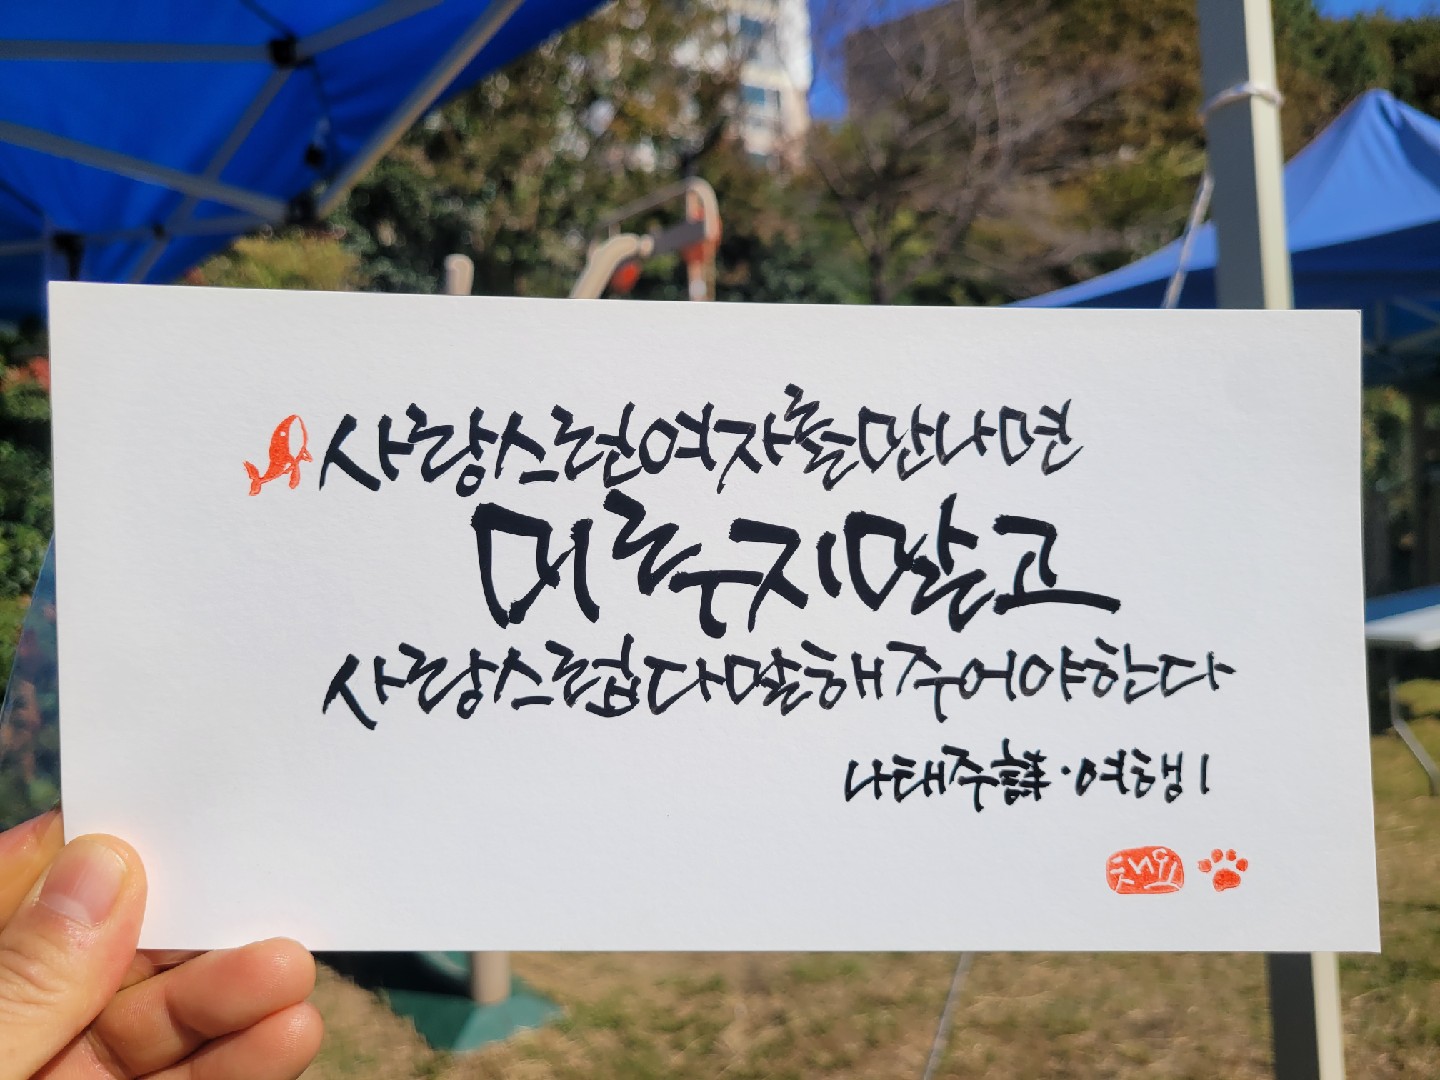 사랑스런 여자를 만나면
미루지 말고
사랑스럽다 말해주어야 한다
나태주 詩 · 여행 1